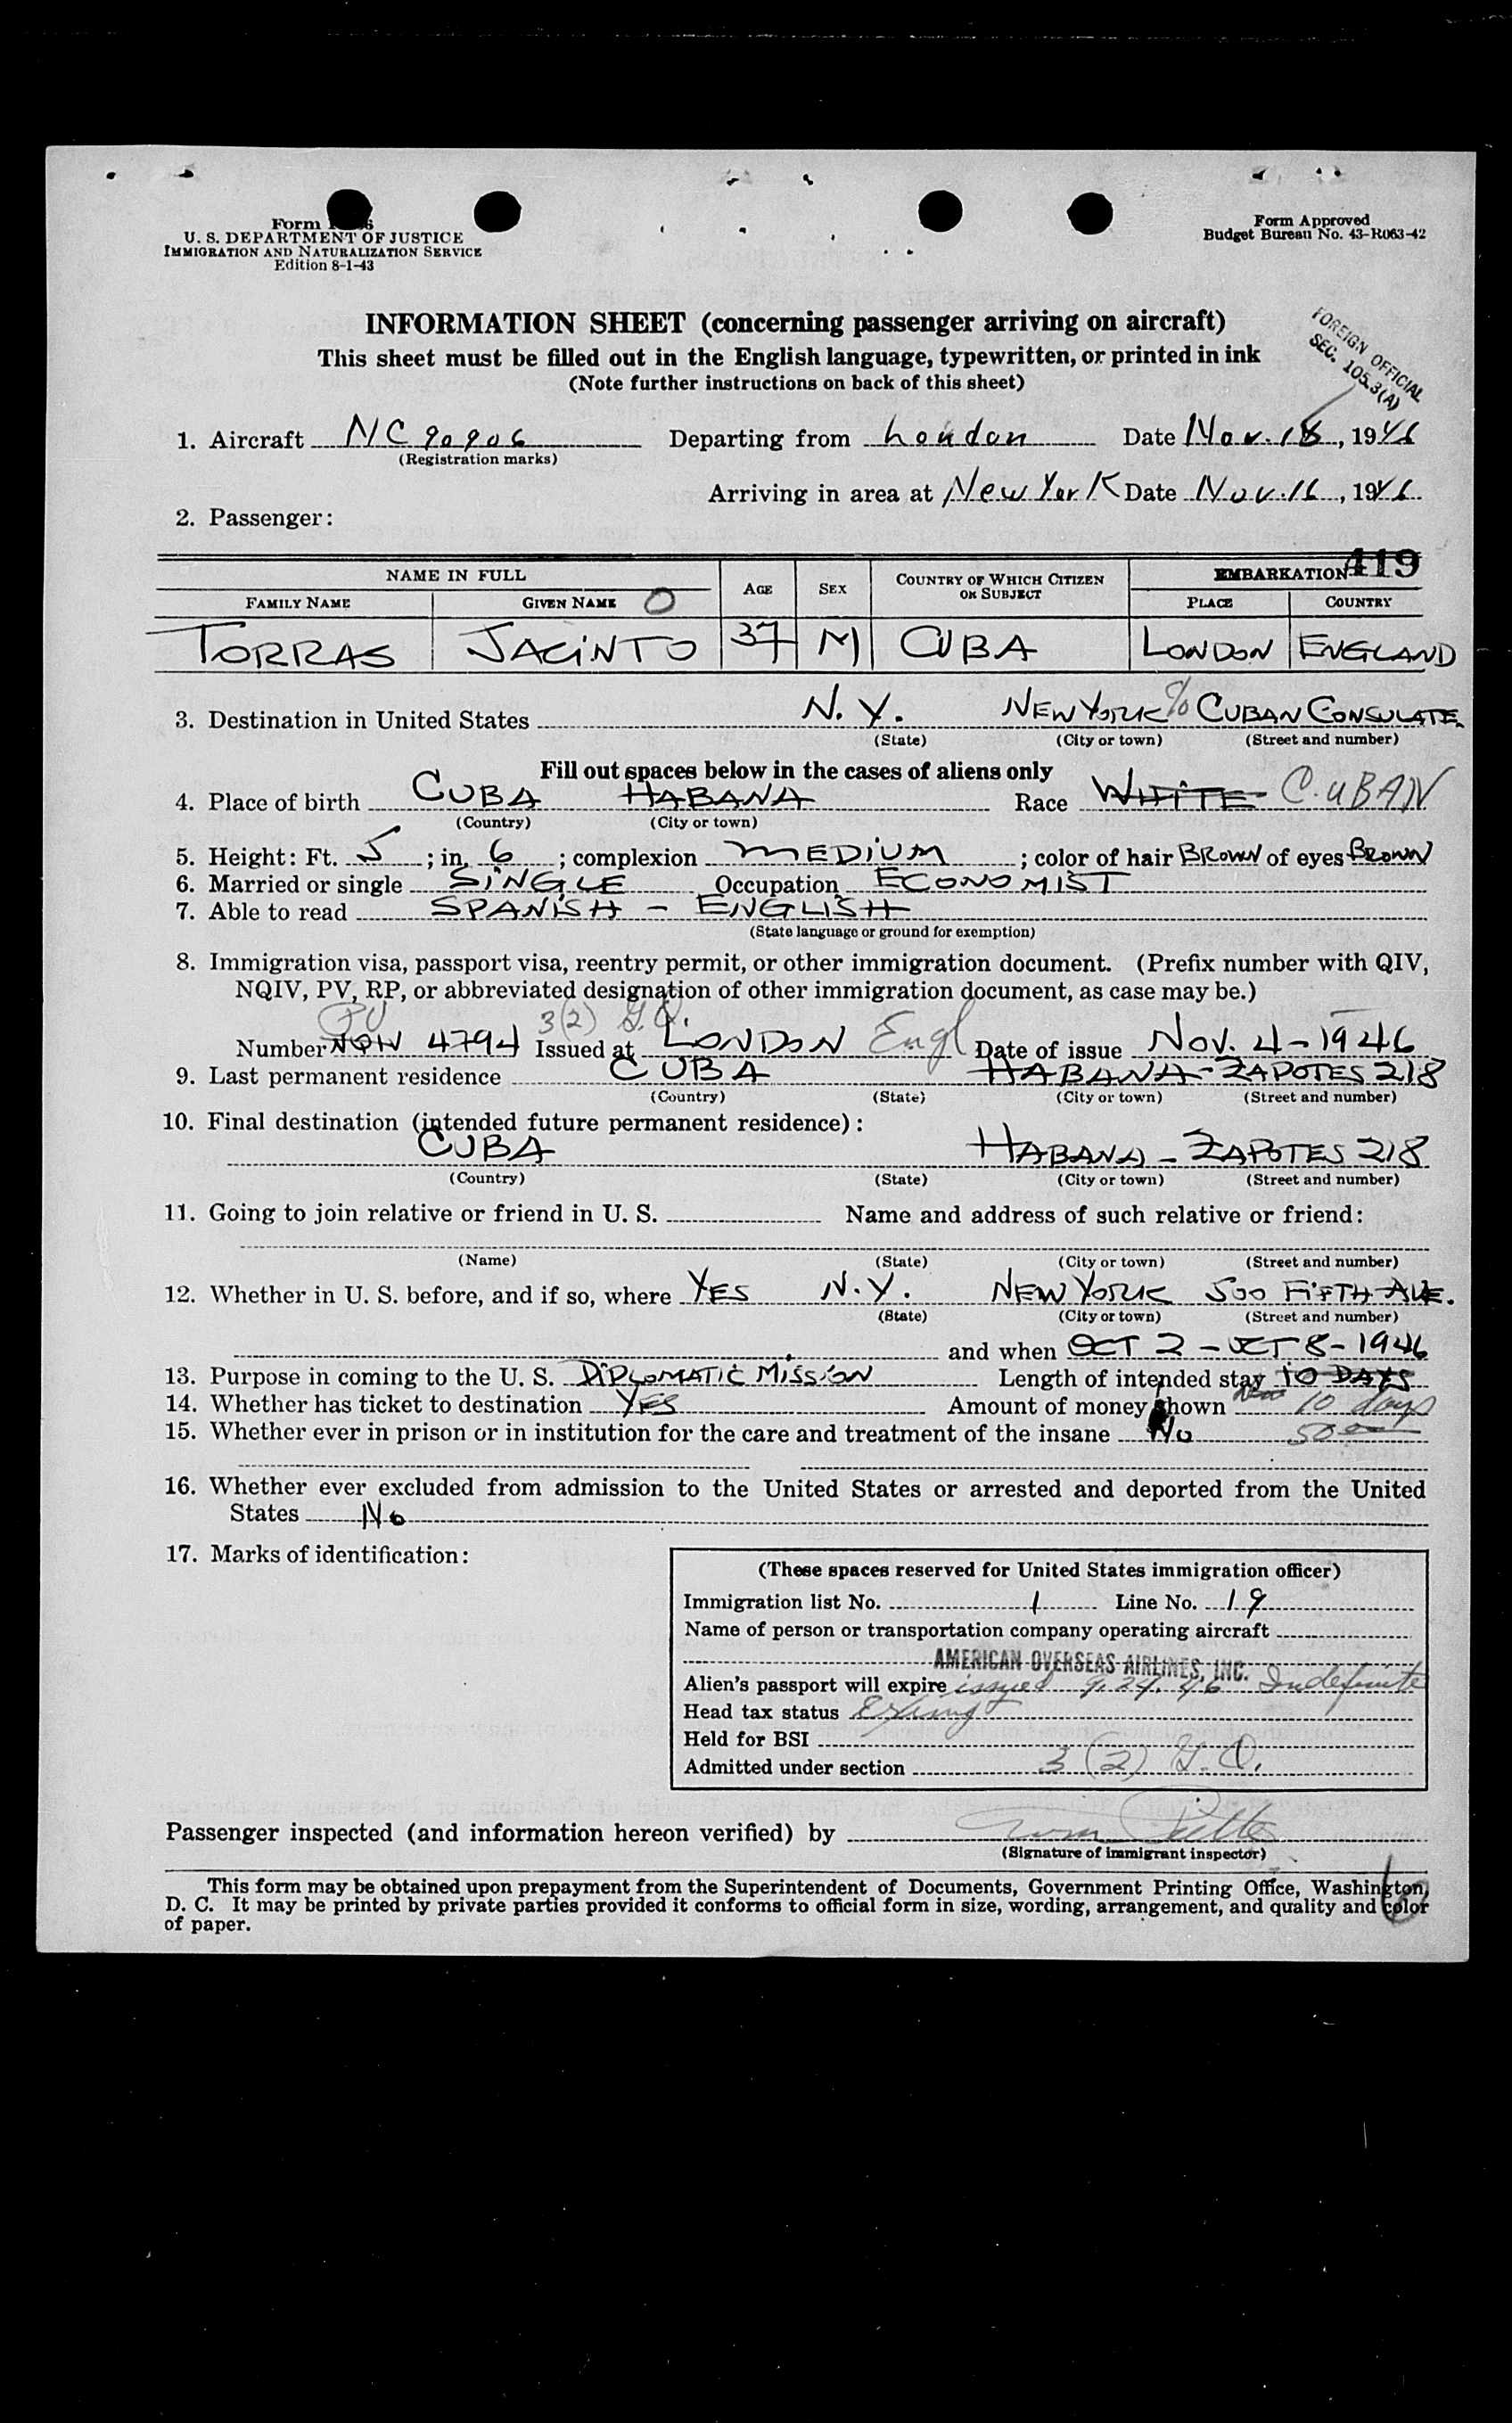 Form
U. S. DEPARTMENT OF JUSTICE
IMMIGRATION AND NATURALIZATION SERVICE
Edition 8-1-43
Form Approved
Budget Bureau No. 43-R063-42
INFORMATION SHEET (concerning passenger arriving on aircraft)
This sheet must be filled out in the English language, typewritten, or printed in ink
(Note further instructions on back of this sheet)
FOREIGN OFFICIAL
SEC. 105.3(A)
1. Aircraft NC 90906 Departing from London Date Nov. , 1946
(Registration marks)
Arriving in area at New York Date Nov. 16, 1946
2. Passenger:
419
NAME IN FULL AGE SEX COUNTRY OF WHICH CITIZEN OR SUBJECT EMBARKATION
FAMILY NAME GIVEN NAME O PLACE COUNTRY
TORRAS JACINTO 37 M CUBA LONDON ENGLAND
3. Destination in United States N. Y. NEW YORK % CUBAN CONSULATE
(State) (City or town) (Street and number)
Fill out spaces below in the cases of aliens only
4. Place of birth CUBA HABANA Race WHITE CUBAN
(Country) (City or town)
5. Height: Ft. 5; in. 6; complexion MEDIUM; color of hair BROWN of eyes BROWN
6. Married or single SINGLE Occupation ECONOMIST
7. Able to read SPANISH - ENGLISH
(State language or ground for exemption)
8. Immigration visa, passport visa, reentry permit, or other immigration document. (Prefix number with QIV,
NQIV, PV, RP, or abbreviated designation of other immigration document, as case may be.)
PV 3(2) G.O.
Number 4794 Issued at LONDON Engl Date of issue NOV. 4 - 1946
9. Last permanent residence CUBA HABANA - ZAPOTES 218
(Country) (State) (City or town) (Street and number)
10. Final destination (intended future permanent residence):
CUBA HABANA - ZAPOTES 218
(Country) (State) (City or town) (Street and number)
11. Going to join relative or friend in U. S. Name and address of such relative or friend:
(Name) (State) (City or town) (Street and number)
12. Whether in U. S. before, and if so, where YES N.Y. NEW YORK 500 FIFTH AVE.
(State) (City or town) (Street and number)
and when OCT 2 - OCT 8 - 1946
13. Purpose in coming to the U. S. DIPLOMATIC MISSION Length of intended stay 10 DAYS
14. Whether has ticket to destination YES Amount of money shown 10 days
15. Whether ever in prison or in institution for the care and treatment of the insane No 50 00
16. Whether ever excluded from admission to the United States or arrested and deported from the United
States No
17. Marks of identification:
(These spaces reserved for United States immigration officer)
Immigration list No. 1 Line No. 19
Name of person or transportation company operating aircraft
AMERICAN OVERSEAS AIRLINES, INC.
Alien's passport will expire issued 9.24.46 Indefinite
Head tax status Exempt
Held for BSI
Admitted under section 3 (2) G.O.
Passenger inspected (and information hereon verified) by
(Signature of immigrant inspector)
This form may be obtained upon prepayment from the Superintendent of Documents, Government Printing Office, Washington,
D. C. It may be printed by private parties provided it conforms to official form in size, wording, arrangement, and quality and color
of paper.